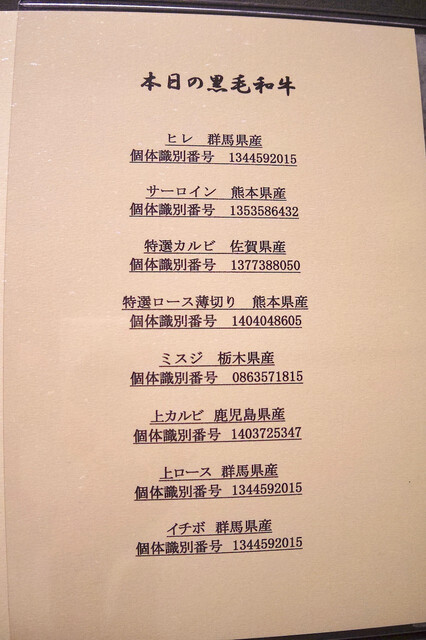 本日の黒毛和牛
ヒレ 群馬県産
個体識別番号 1344592015
サーロイン 熊本県産
個体識別番号 1353586432
特選カルビ 佐賀県産
個体識別番号 1377388050
特選ロース薄切り 熊本県産
個体識別番号 1404048605
ミスジ 栃木県産
個体識別番号 0863571815
上カルビ 鹿児島県産
個体識別番号 1403725347
上ロース 群馬県産
個体識別番号 1344592015
イチボ 群馬県産
個体識別番号 1344592015